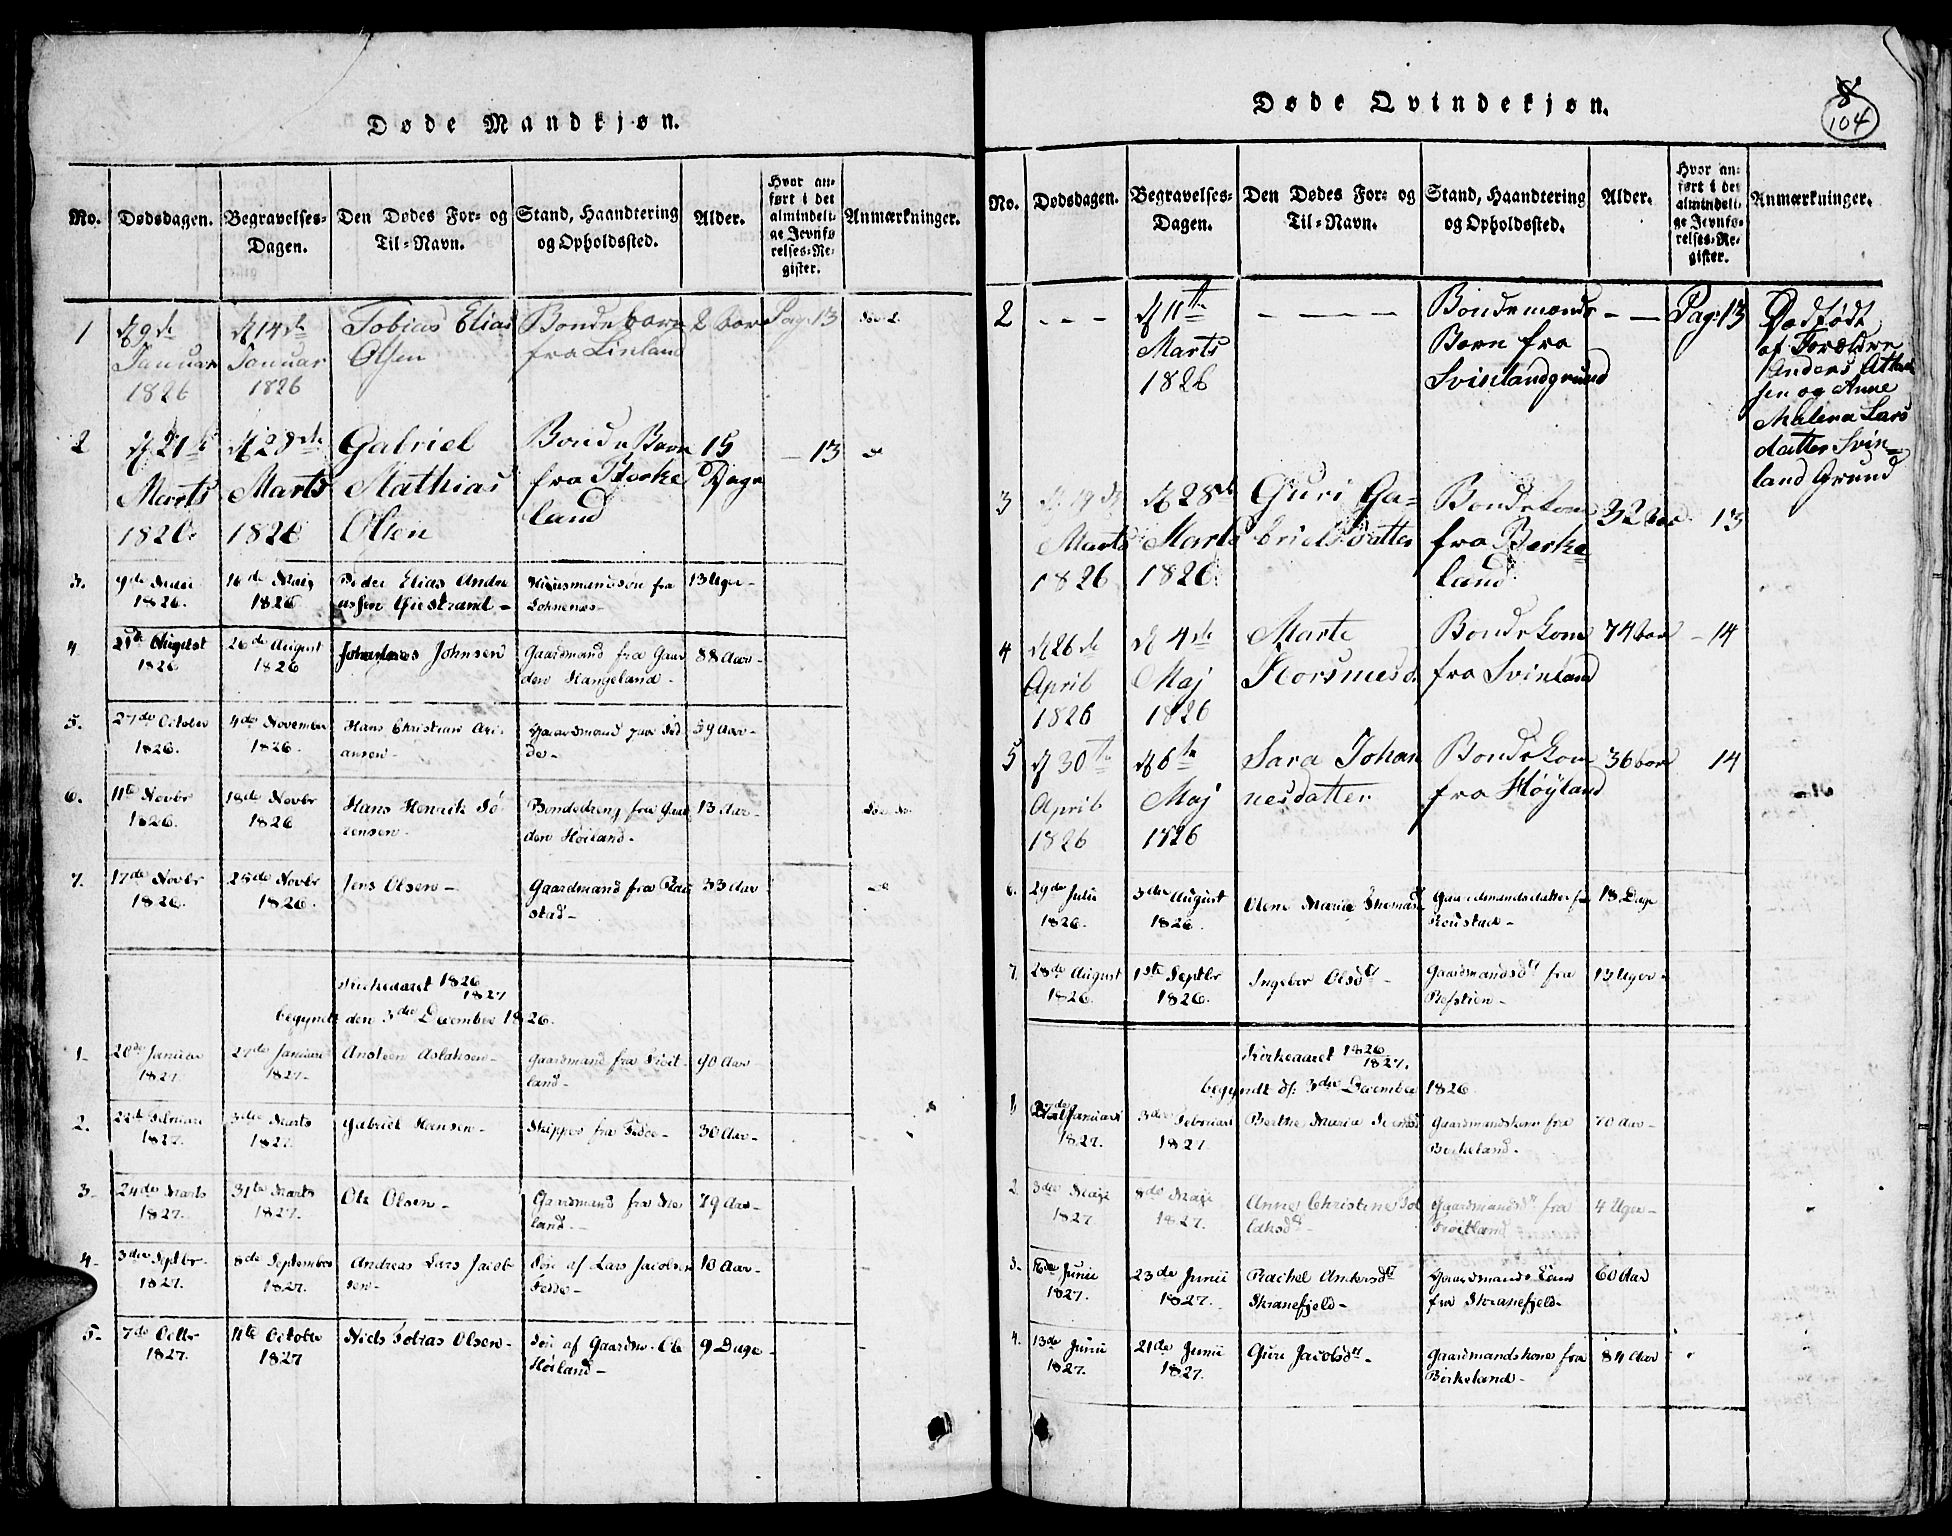 Døde Mandkjøn.
No.
Dødsdagen.
Begravelses-
Dagen.
Den Dødes For- og
Til-Navn.
Stand, Haandtering
og Opholdssted.
Alder.
Hvor an-
ført i det
almindeli-
ge Jevnfø-
relses-Re-
gister.
Anmærkninger.
1
d 9de
Januar
1826
d 14de
Januar
1826
Tobias Elias
Olsen
Bondebarn
fra Linland
2 Aar
Pag: 13
2
d 21de
Marts
1826
d 28de
Marts
1826
Gabriel
Mathias
Olsen
Bonde Barn
fra Birke
land
15
Dage
- 13
3.
9de
1826.
16de Maij
1826
Peder Elias Andre
assen
Huusmandssøn fra
13 Uger-
4
21de August
1826
26de August
1826
Johannes Johnsen
Gaardmand fra Gaar
den Hangeland-
88 Aar-
5.
27de October
1826.
4de November
1826.
Hans Christian Ari-
ansen-
Gaardmand paa Fed
de-
59 Aar-
6.
11te Novbr
1826.
18de Novbr
1826
Hans Henrik Sö
rensen-
Bondedreng fra Gaar
den Höiland-
13 Aar-
7.
17de Novbr
1826.
25de Novbr
1826.
Jens Olsen-
Gaardmand fra Rau
stad-
33 Aar
Kirkeaaret 1826
1827
begyndt den 3die December 1826.
1-
20de Januar
1827
27de Januari
1827.
Ansteen Aslaksen-
Gaardmand fra Fröit
land-
90 Aar-
2.
22de Februar
1827.
3die Marts
1827.
Gabriel Hansen-
Skipper fra Fedde-
30 Aar-
3-
24de Marts
1827.
31te Marts
1827.
Ole Olsen-
Gaardmand fra
land.-
79 Aar-
4-
3die Septbr.
1827.
8de September
1827.
Andreas Lars Jacob
sen-
Sön af Lars Jacobsen
Fedde-
10 Aar-
5-
7de Octbr
1827.
11te October
1827
Niels Tobias Olsen-
Sön af Gaardm. Ole
Höiland-
9 Dage-
Døde Qvindekjøn.
8
104
No.
Dødsdagen.
Begravelses-
Dagen.
Den Dødes For- og
Til-Navn.
Stand, Haandtering
og Opholdssted.
Alder.
Hvor an-
ført i det
almindeli-
ge Jevnfø-
relses-Re-
gister.
Anmærkninger.
2
- - -
d 11te
Marts
1826
- - - -
Bondemands
Barn fra
Svinlandgrund
- -
Pag: 13
Dødfødt
af Forældre
Anders
sen og Anne
Malena Lars
datter Svin-
land Grund
3
d 19de
Marts
1826
d 28de
Marts
1826.
Guri Ga-
brielsdatter
Bondekone
fra Berke
land
32 Aar
13
4
d 26de
April
1826
d 4de
Maj
1826
Marte
Bondekone
fra Svinland
74 Aar
- 14
5
d 30te
April
1826
d 6te
Maj
1826
Sara Johan
nesdatter
Bondekone
fra Höyland
36 Aar
14
6.
29de Julii
1826.
3die August
1826.
Olene Maria Thomasd
Gaardmandsdatter fra
Röustad-
18 Dage
7.
28de August
1826.
1ste Septbr
1826.
Ingebor Olsdtr-
Gaardmandsdtr fra
Refstien-
13 Uger-
Kirkeaaret 1826
1827.
begyndt d: 3die December 1826
1
27de Januarii
1827.
3die Februari
1827.
Berthe Maria
Gaardmandskone fra
Birkeland.
70 Aar-
2
3die Maji
1827
8de Maji
1827.
Anne Christine Tol
laksd
Gaardmandsdtr fra
Fröitland
4 Uger-
3-
16de Junii
1827.
23de Junii
1827.
Rachel Andersdtr
Skranefjeld-
Gaardmands Kone
fra Skranefjeld-
60 Aar
4.
13de Junii
1827.
21de Junii
1827.
Guri Jacobsdtr-
Gaardmandskone fra
Birkeland-
84 Aar